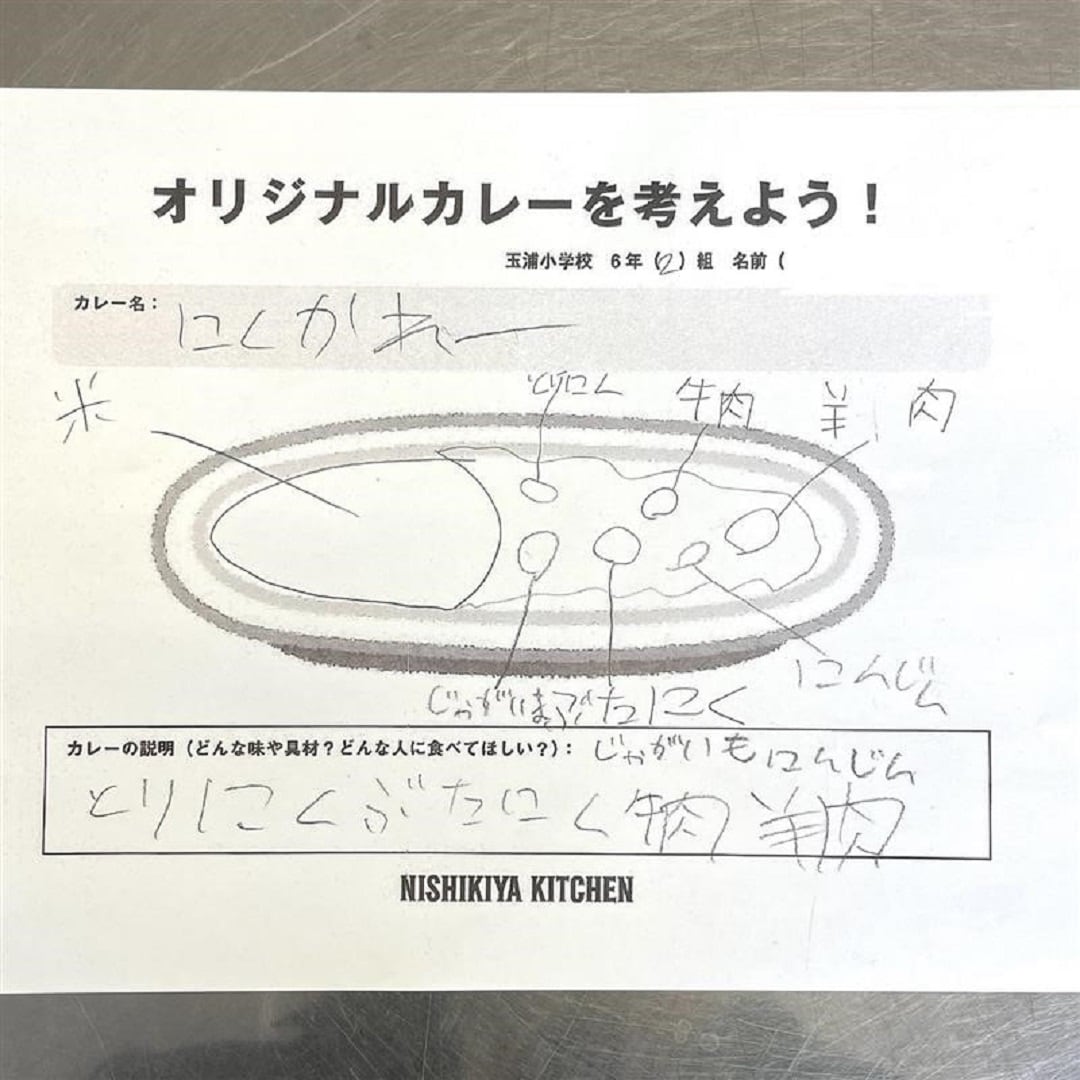 オリジナルカレーを考えよう！
玉浦小学校 6年（2）組 名前（
カレー名：にくかれー
米
とりにく
牛肉
羊肉
じゃがいも
ぶたにく
にんじん
カレーの説明（どんな味や具材？どんな人に食べてほしい？）：じゃがいも にんじん
とりにく ぶたにく 牛肉 羊肉
NISHIKIYA KITCHEN